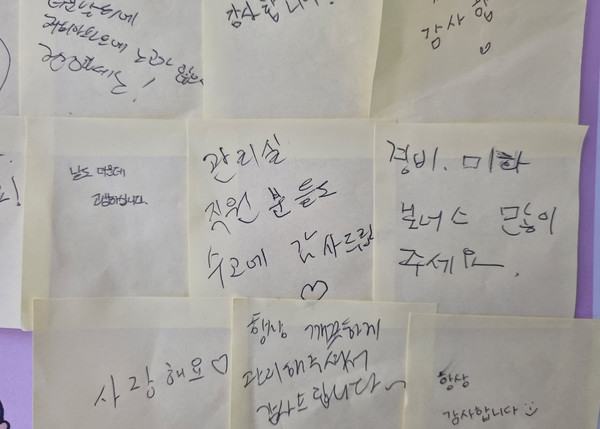 감사합니다!
감사합
♡
날도 더운데
고생하십니다.
관리실
직원 분들도
수고에 감사드림
♡
경비. 미화
보너스 많이
주세요.
사랑해요♡
항상 깨끗하게
관리해주셔서
감사드립니다~
항상
감사합니다 :)